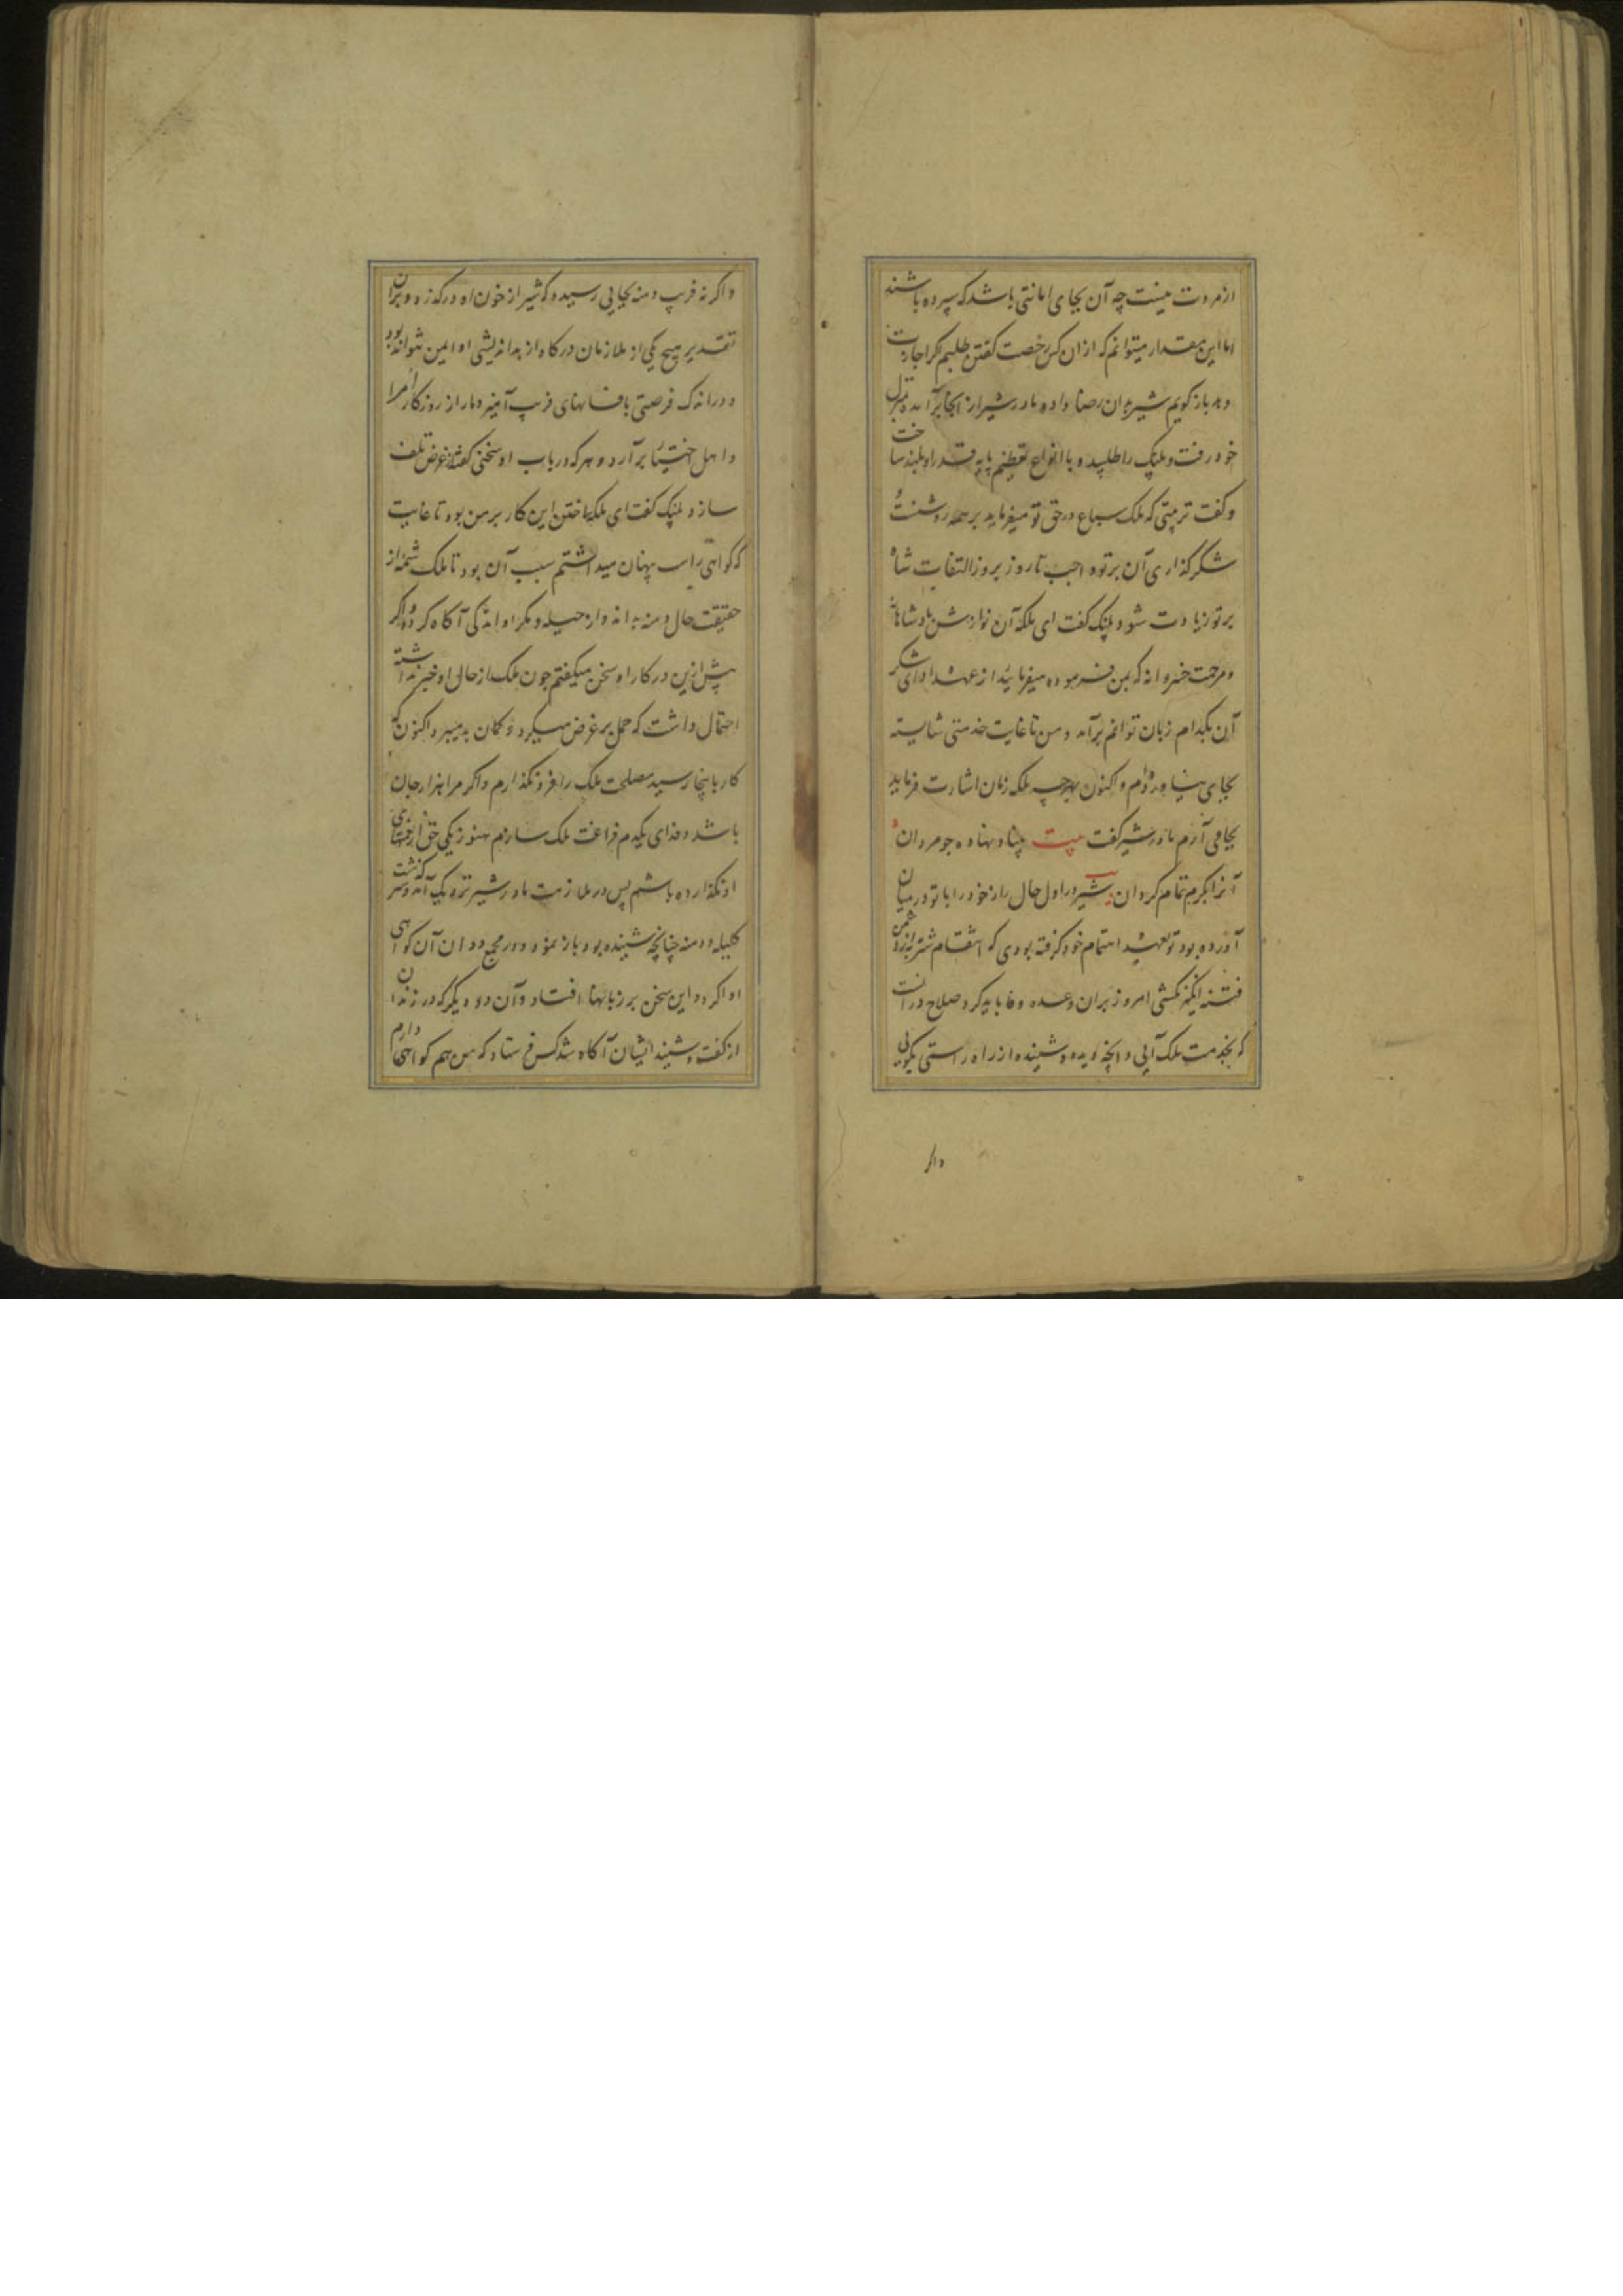 از مروت نیست چه آن بجای امانتی باشد که سپرده باشند
اما این مقدار میتوانم که ازان کس رخصت گفتن طلبم اگر اجازت
دهد بازگویم شیر بدان رضا داده مادر شیر از آنجا برآمده بمنزل
خود رفت و پلنک را طلبید و با انواع تعظیم پایه قدر او بلند ساخت
و کفت تربیتی که ملک سباع در حق تو میفرماید بر همه روشنست
شکر کذاری آن بر تو واجب تا روز بروز التفات شاه
بر تو زیادت شود پلنک کفت ای ملکه آن نوازش پادشاهانه
و مرحمت خسروانه که بمن فرموده میفرماید از عهده ادای شکر
آن بکدام زبان توانم برآمد و من تا غایت خدمتی شایسته
بجای نیاورده‌ام و اکنون بهرچه ملکه زمان اشارت فرماید
بجا می آرم مادر شیر کفت بیت بنیاد نهاده جو مردان
آنرا بکرم تمام کردان شیر در اول حال راز خود را با تو در میان
آورده بود تو عهده اهتمام خود کرفته بودی که انتقام شتربه از دشمن
فتنه انکیز بکشی امروز بران وعده وفا باید کرد صلاح در آنست
که بخدمت ملک آیی و آنچه دیده و شنیده از راه راستی بگویی
واگر
و اگر نه فریب دمنه بجایی رسیده که شیر از خون او درکذرد و بران
تقدیر هیچ یکی از ملازمان درکاه از بداندیشی او ایمن نتواند بود
و در اندک فرصتی بافسانهای فریب آمیز دمار از روزکار امرا
و اهل اختیار برآرد و هر که در باب او سخنی کفته بغرض تلف
سازد پلنک کفت ای ملکه ساختن این کار بر من بود تا غایت
که کواهی را پنهان میداشتم سبب آن بود تا ملک شمه از
حقیقت حال دمنه بداند و از حیله و مکر او اندکی آکاه کردد و اگر
پیش ازین در کار او سخن میکفتم جون ملک از حال او خبر نداشته
احتمال داشت که حمل بر غرض میکرد و کمان بد میبرد اکنون که
کار باینجا رسید مصلحت ملک را فرو نکذارم و اگر مرا هزار جان
باشد و فدای یکدم فراغت ملک سازم هنوز یکی حق از نعمتهای
او نکذارده باشم پس در ملازمت مادر شیر نزدیک آمد و سرکذشت
کلیله و دمنه چنانچه شنیده بود باز نمود و در مجمع ددان آن کواهی
ادا کرد و این سخن بر زبانها افتاد و آن دد دیگر که در زندان
از کفت و شنید ایشان آکاه شد کس فرستاد که من هم کواهی دارم